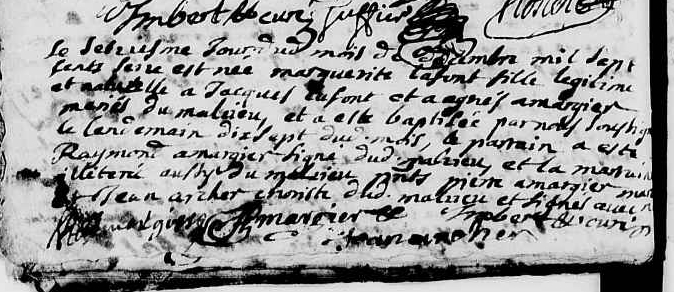 Imbert curé juffier
Le seziesme Jour dud mois de decembre mil sept
cents seize est née marguerite lafont fille legitime
et naturelle a Jacques lafont et a agnés amargier
mariés du malzieu, et a esté baptisée par nous soussig
le lendemain dix sept dud mois, le parrain a esté
Raymond amargier signé dud malzieu, et la marrain
illeteré aussy du malzieu pnts pierre amargier
et Jean archer choriste dud malzieu et signés avec n
amargier Imbert curé
Jean archer